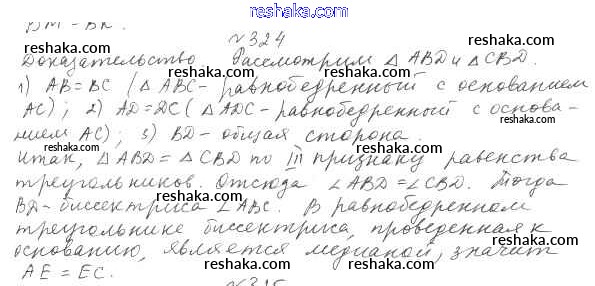 reshaka.com
ВМ = ВК.
№324
Доказательство. Рассмотрим △ ABD и △ CBD.
1) AB = BC (△ ABC - равнобедренный с основанием
AC); 2) AD = DC (△ ADC - равнобедренный с основа-
нием AC); 3) BD - общая сторона.
Итак, △ ABD = △ CBD по III признаку равенства
треугольников. Отсюда ∠ABD = ∠CBD. Тогда
BD - биссектриса ∠ABC. В равнобедренном
треугольнике биссектриса, проведенная к
основанию, является медианой, значит
AE = EC.
reshaka.com
№325